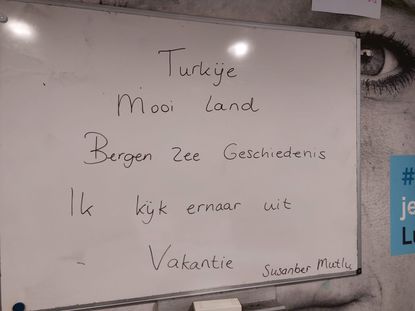 Turkije
Mooi Land
Bergen Zee Geschiedenis
Ik kijk ernaar uit
- Vakantie
Susanber Mutlu
#
je
Lu